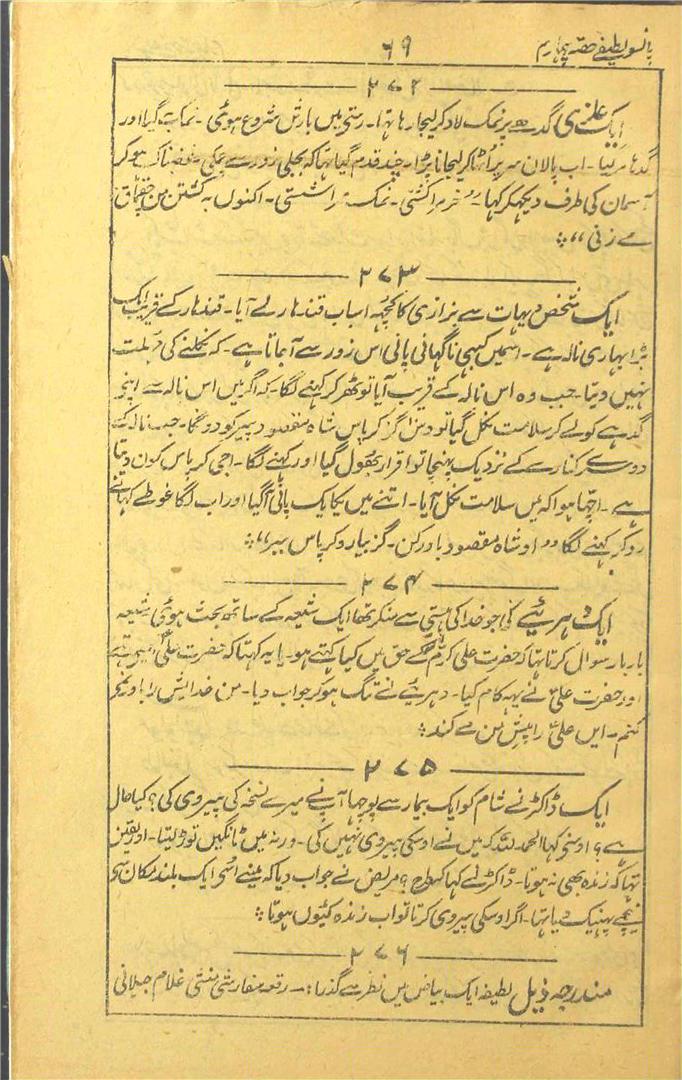 پانسو لطیفے حصہ چہارم
۶۹
۲۷۲
ایک غلزئی گدھے پر نمک لاد کر لیجا رہا تہا۔ رستی میں بارش شروع ہوئی۔ نمک بہ گیا اور
گدھا مر گیا۔ اب پالان سر پر اٹھا کر لیجانا پڑا۔ چند قدم گیا تہا کہ بجلی زور سے چمکی۔ غضبناک ہو کر
آسمان کی طرف دیکھکر کہا۔ ”خر مرا کشتی۔ نمک مرا شستی۔ اکنوں بہ کشتن من چقماق
مے زنی“
۲۷۳
ایک شخص دیہات سے بزازی کا کچھہ اسباب قندھار لے آیا۔ قندھار کے قریب ایک
بڑا بہاری نالہ ہے۔ اسمیں کبھی ناگہانی پانی اس زور سے آجاتا ہے۔ کہ نکلنے کی مہلت
نہیں دیتا۔ جب وہ اس نالہ کے قریب آیا تو ٹھر کر کہنے لگا۔ کہ اگر میں اس نالہ سے اپنو
گدھے کو لے کر سلامت نکل گیا تو دس گز کرپاس شاہ مقصود پیر کو دونگا۔ جب نالہ کے
دوسرے کنارے کے نزدیک پہنچا تو اقرار بھول گیا اور کہنے لگا۔ اجی کرپاس کون دیتا
ہے۔ اچھا ہوا کہ میں سلامت نکل آیا۔ اتنے میں یکایک پانی آگیا اور اب لگا غوطے کہانے
رو کر کہنے لگا ”او شاہ مقصود باور کن۔ گز بیار و کرپاس ببر“
۲۷۴
ایک دہرئیے کی جو خدا کی ہستی سے منکر تھا ایک شیعہ کے ساتھ بحث ہوئی شیعہ
بار بار سوال کرتا تہا کہ حضرت علی کرم کے حق میں کیا کہتے ہو۔ یا یہ کہتا کہ حضرت علیؑ
اور حضرت علیؑ نے یہہ کام کیا۔ دہرئیے نے تنگ ہو کر جواب دیا۔ من خدایش را باور نمے
کنم۔ ایں علیؑ را پیش من مے کند
۲۷۵
ایک ڈاکٹر نے شام کو ایک بیمار سے پوچہا آپنے میرے نسخہ کی پیروی کی؟ کیا حال
ہے؟ اوسنی کہا الحمد للہ کہ میں نے اوسکی پیروی نہیں کی۔ ورنہ میں ٹانگیں توڑ لیتا۔ اور یقین
تہا کہ زندہ بھی نہ ہوتا۔ ڈاکٹر نے کہا کسطرح؟ مریض نے جواب دیا کہ مینے اُسی ایک بلند مکان سی
نیچے پہینک دیا تہا۔ اگر اوسکی پیروی کرتا تو اب زندہ کیوں ہوتا
۲۷۶
مندرجہ ذیل لطیفہ ایک بیاض میں نظر سے گذرا:۔ رقعہ سفارشی منشی غلام جیلانی